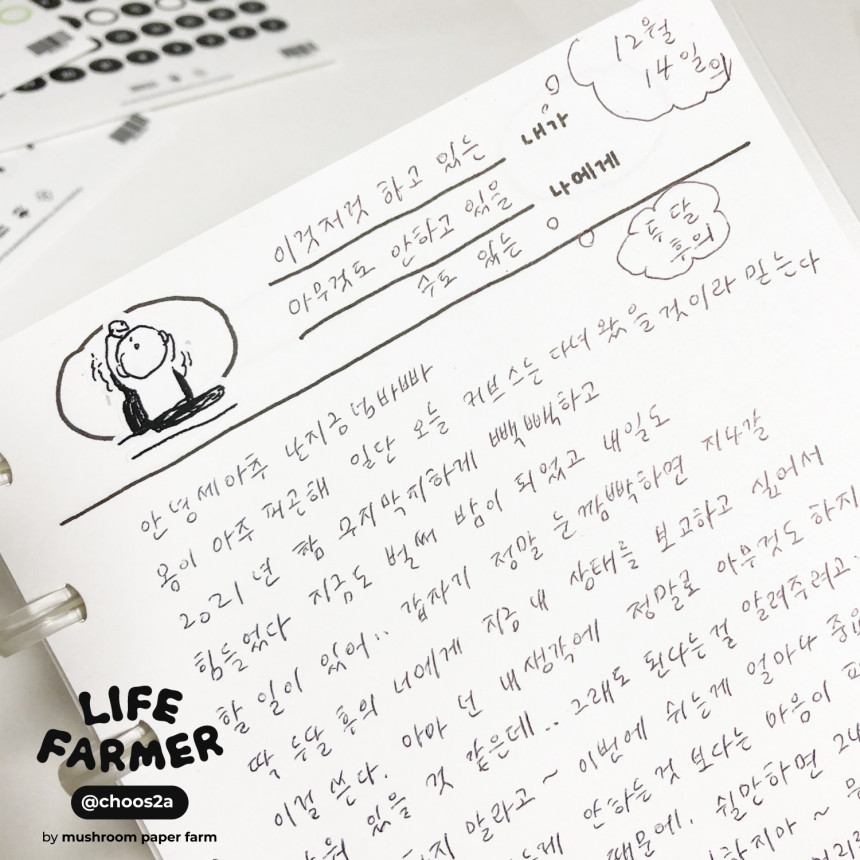 12월
14일의
이것저것 하고 있는 내가
아무것도 안하고 있을 나에게
수도 있는
두 달
후의
안녕세아추 난지금넘바빠
몸이 아주 피곤해 일단 오늘 커브스는 다녀왔을것이라 믿는다
2021년 참 무지막지하게 빽빽하고
힘들었다 지금도 벌써 밤이 되었고 내일도
할 일이 있어.. 갑자기 정말 눈깜빡하면 지나갈
딱 두달 후의 너에게 지금 내 상태를 보고하고 싶어서
이걸 쓴다. 아마 넌 내생각에 정말로 아무것도 하지
있을 것 같은데.. 그래도 된다는걸 알려주려고.
말라고~ 이번에 쉬는게 얼마나
안하는것 보다는 마음이
때문에. 쉴만하면
LIFE
FARMER
@choos2a
by mushroom paper farm